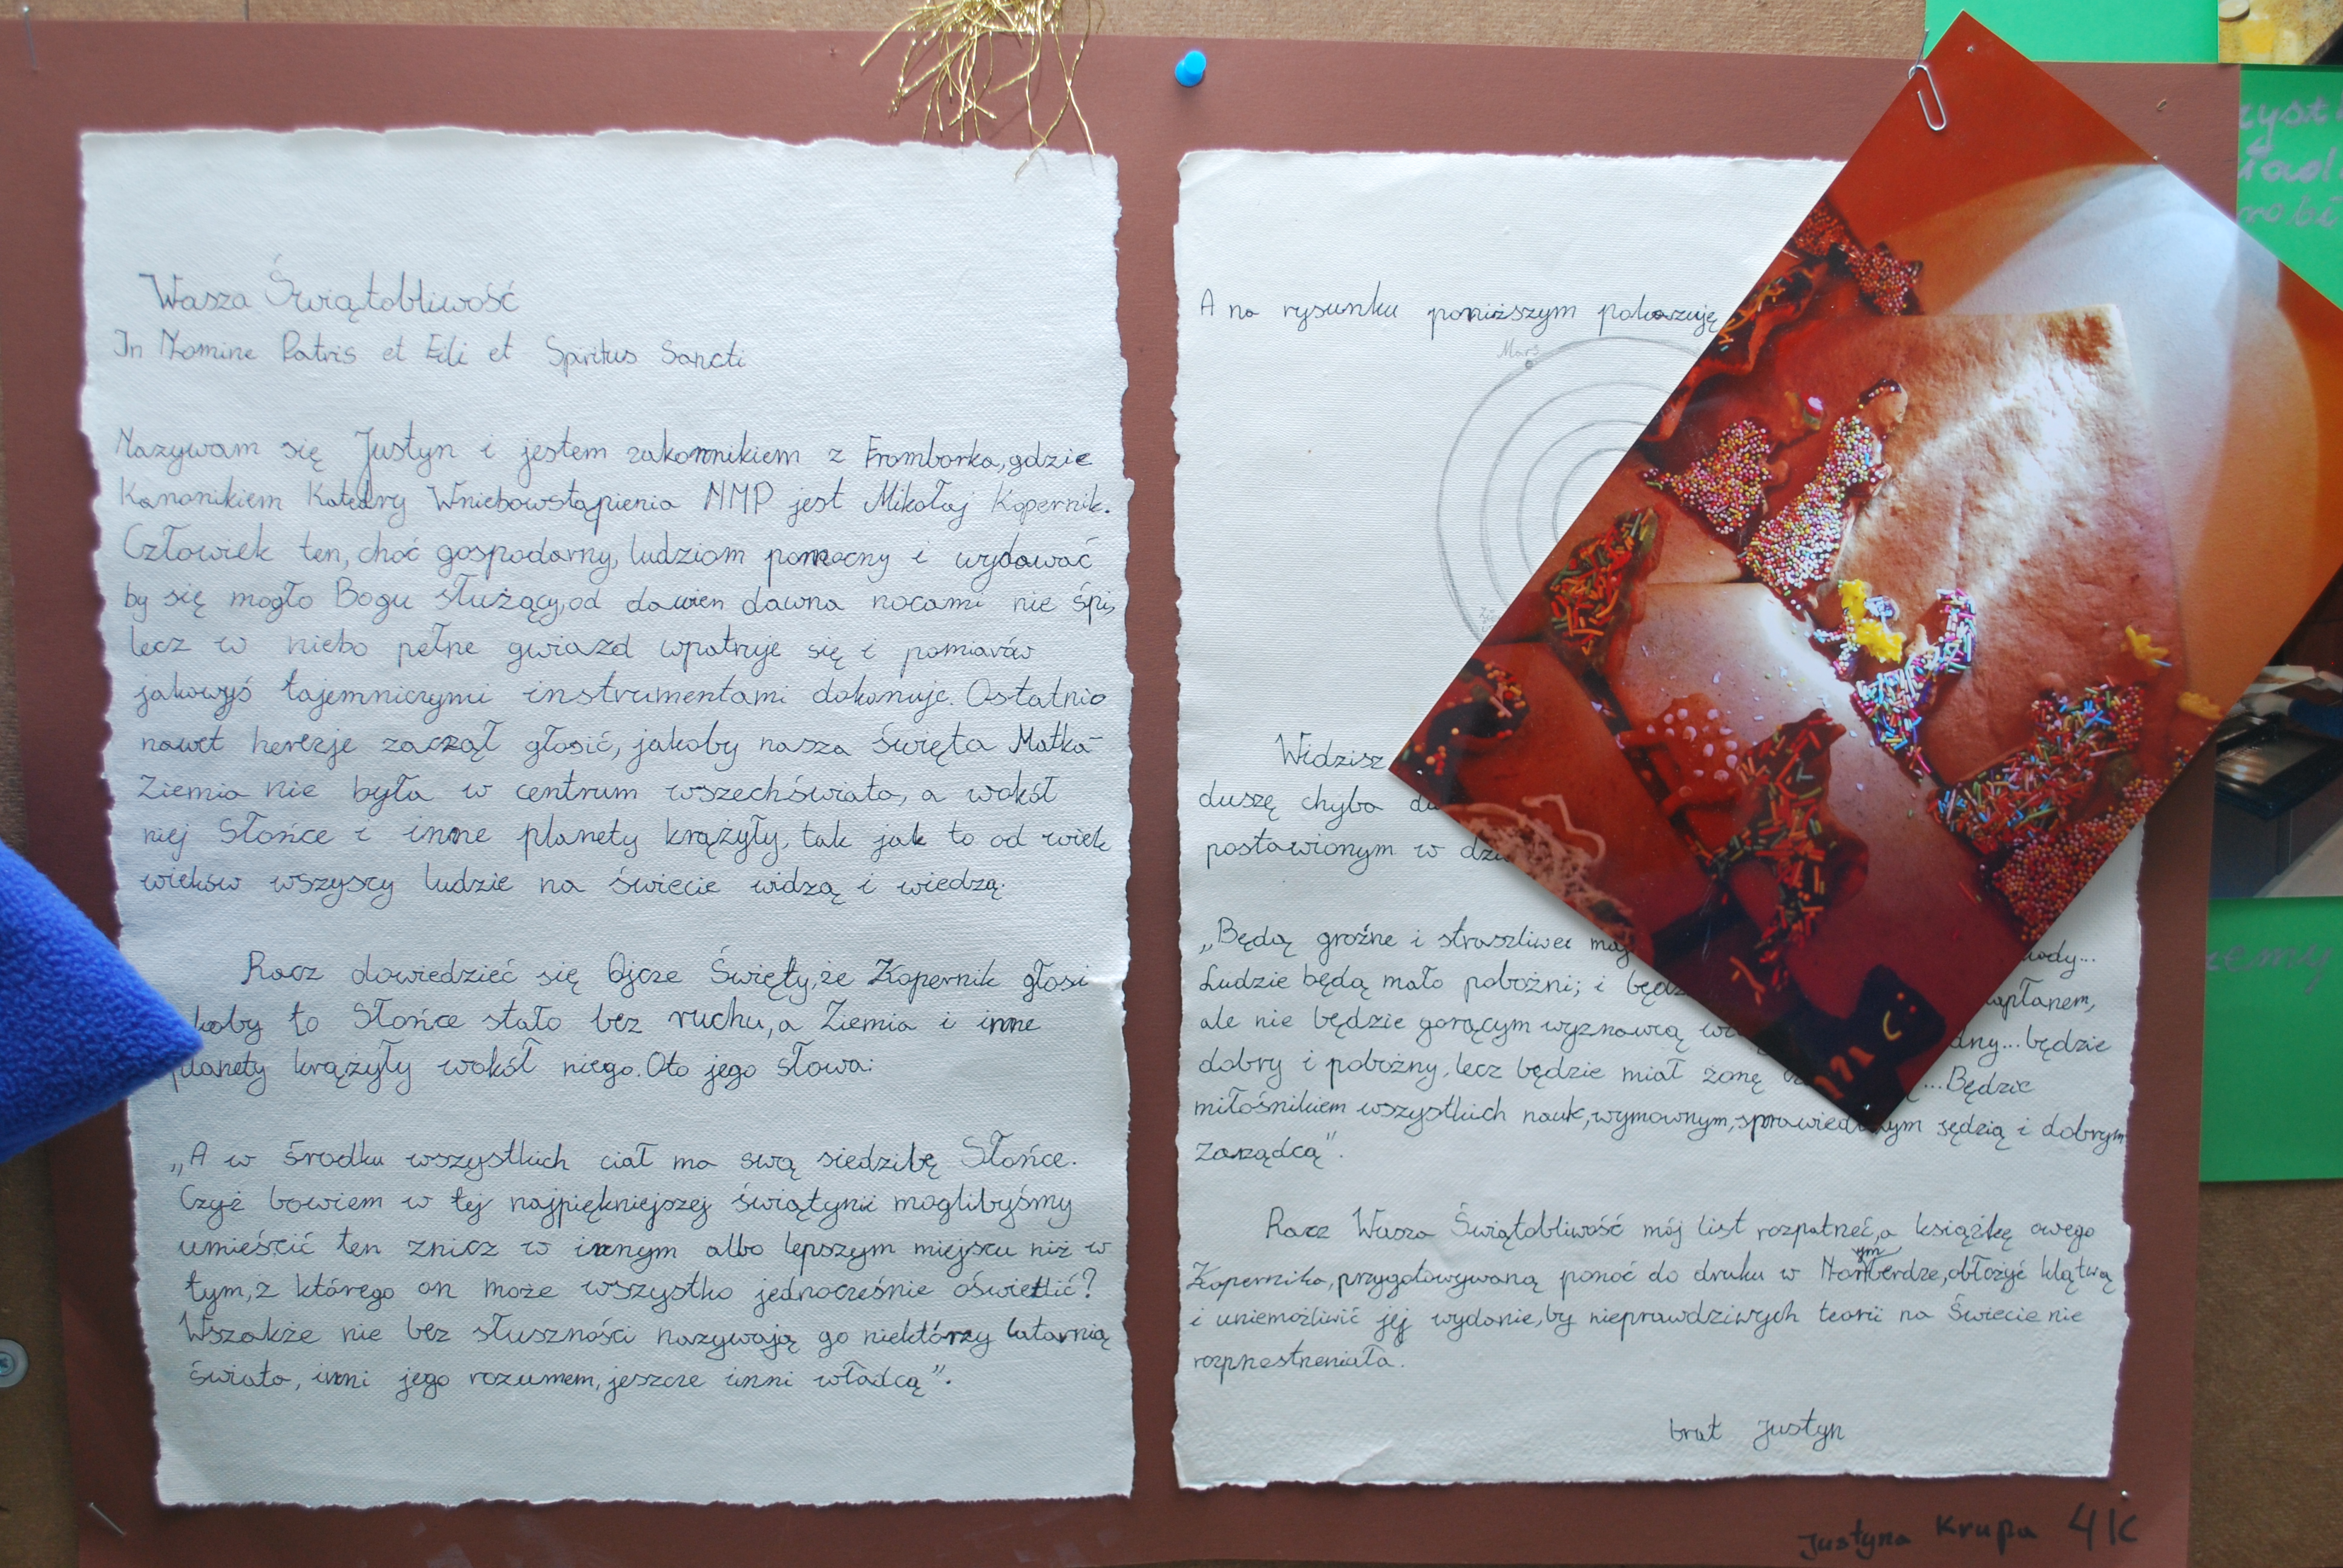 Wasza Świątobliwość
In Nomine Patris et Fili et Spiritus Sancti
Nazywam się Justyn i jestem zakonnikiem z Fromborka, gdzie
Kanonikiem Katedry Wniebowstąpienia NMP jest Mikołaj Kopernik.
Człowiek ten, choć gospodarny, ludziom pomocny i wydawać
by się mogło Bogu służący, od dawien dawna nocami nie śpi,
lecz w niebo pełne gwiazd wpatruje się i pomiarów
jakowyś tajemniczymi instrumentami dokonuje. Ostatnio
nawet herezje zaczął głosić, jakoby nasza święta Matka-
Ziemia nie była w centrum wszechświata, a wokół
niej Słońce i inne planety krążyły, tak jak to od wiek
wieków wszyscy ludzie na świecie widzą i wiedzą.
Racz dowiedzieć się Ojcze Święty, że Kopernik głosi
koby to Słońce stało bez ruchu, a Ziemia i inne
planety krążyły wokół niego. Oto jego słowa:
„A w środku wszystkich ciał ma swą siedzibę Słońce.
Czyż bowiem w tej najpiękniejszej świątynii moglibyśmy
umieścić ten znicz w innym albo lepszym miejscu niż w
tym, z którego on może wszystko jednocześnie oświetlić?
Wszakże nie bez słuszności nazywają go niektórzy latarnią
świata, inni jego rozumem, jeszcze inni władcą".
A na rysunku poniższym pokazuję
Mars
Widzisz
duszę chyba
postawionym w
„Będą groźne i straszliwe
ody...
Ludzie będą mało pobożni; i
apłanem,
ale nie będzie gorącym wyznawcą
dny... będzie
dobry i pobożny, lecz będzie miał żonę
...Będzie
miłośnikiem wszystkich nauk, wymownym, sprawiedliwym sędzią i dobrym
zarządcą".
Racz Wasza Świątobliwość mój list rozpatrzeć, a książkę owego
Kopernika, przygotowywaną ponoć do druku w Norymberdze, obłożyć klątwą
i uniemożliwić jej wydanie, by nieprawdziwych teorii na Świecie nie
rozprzestrzeniała.
brat Justyn
Justyna Krupa 4K
zyst
ład
robi
zemy